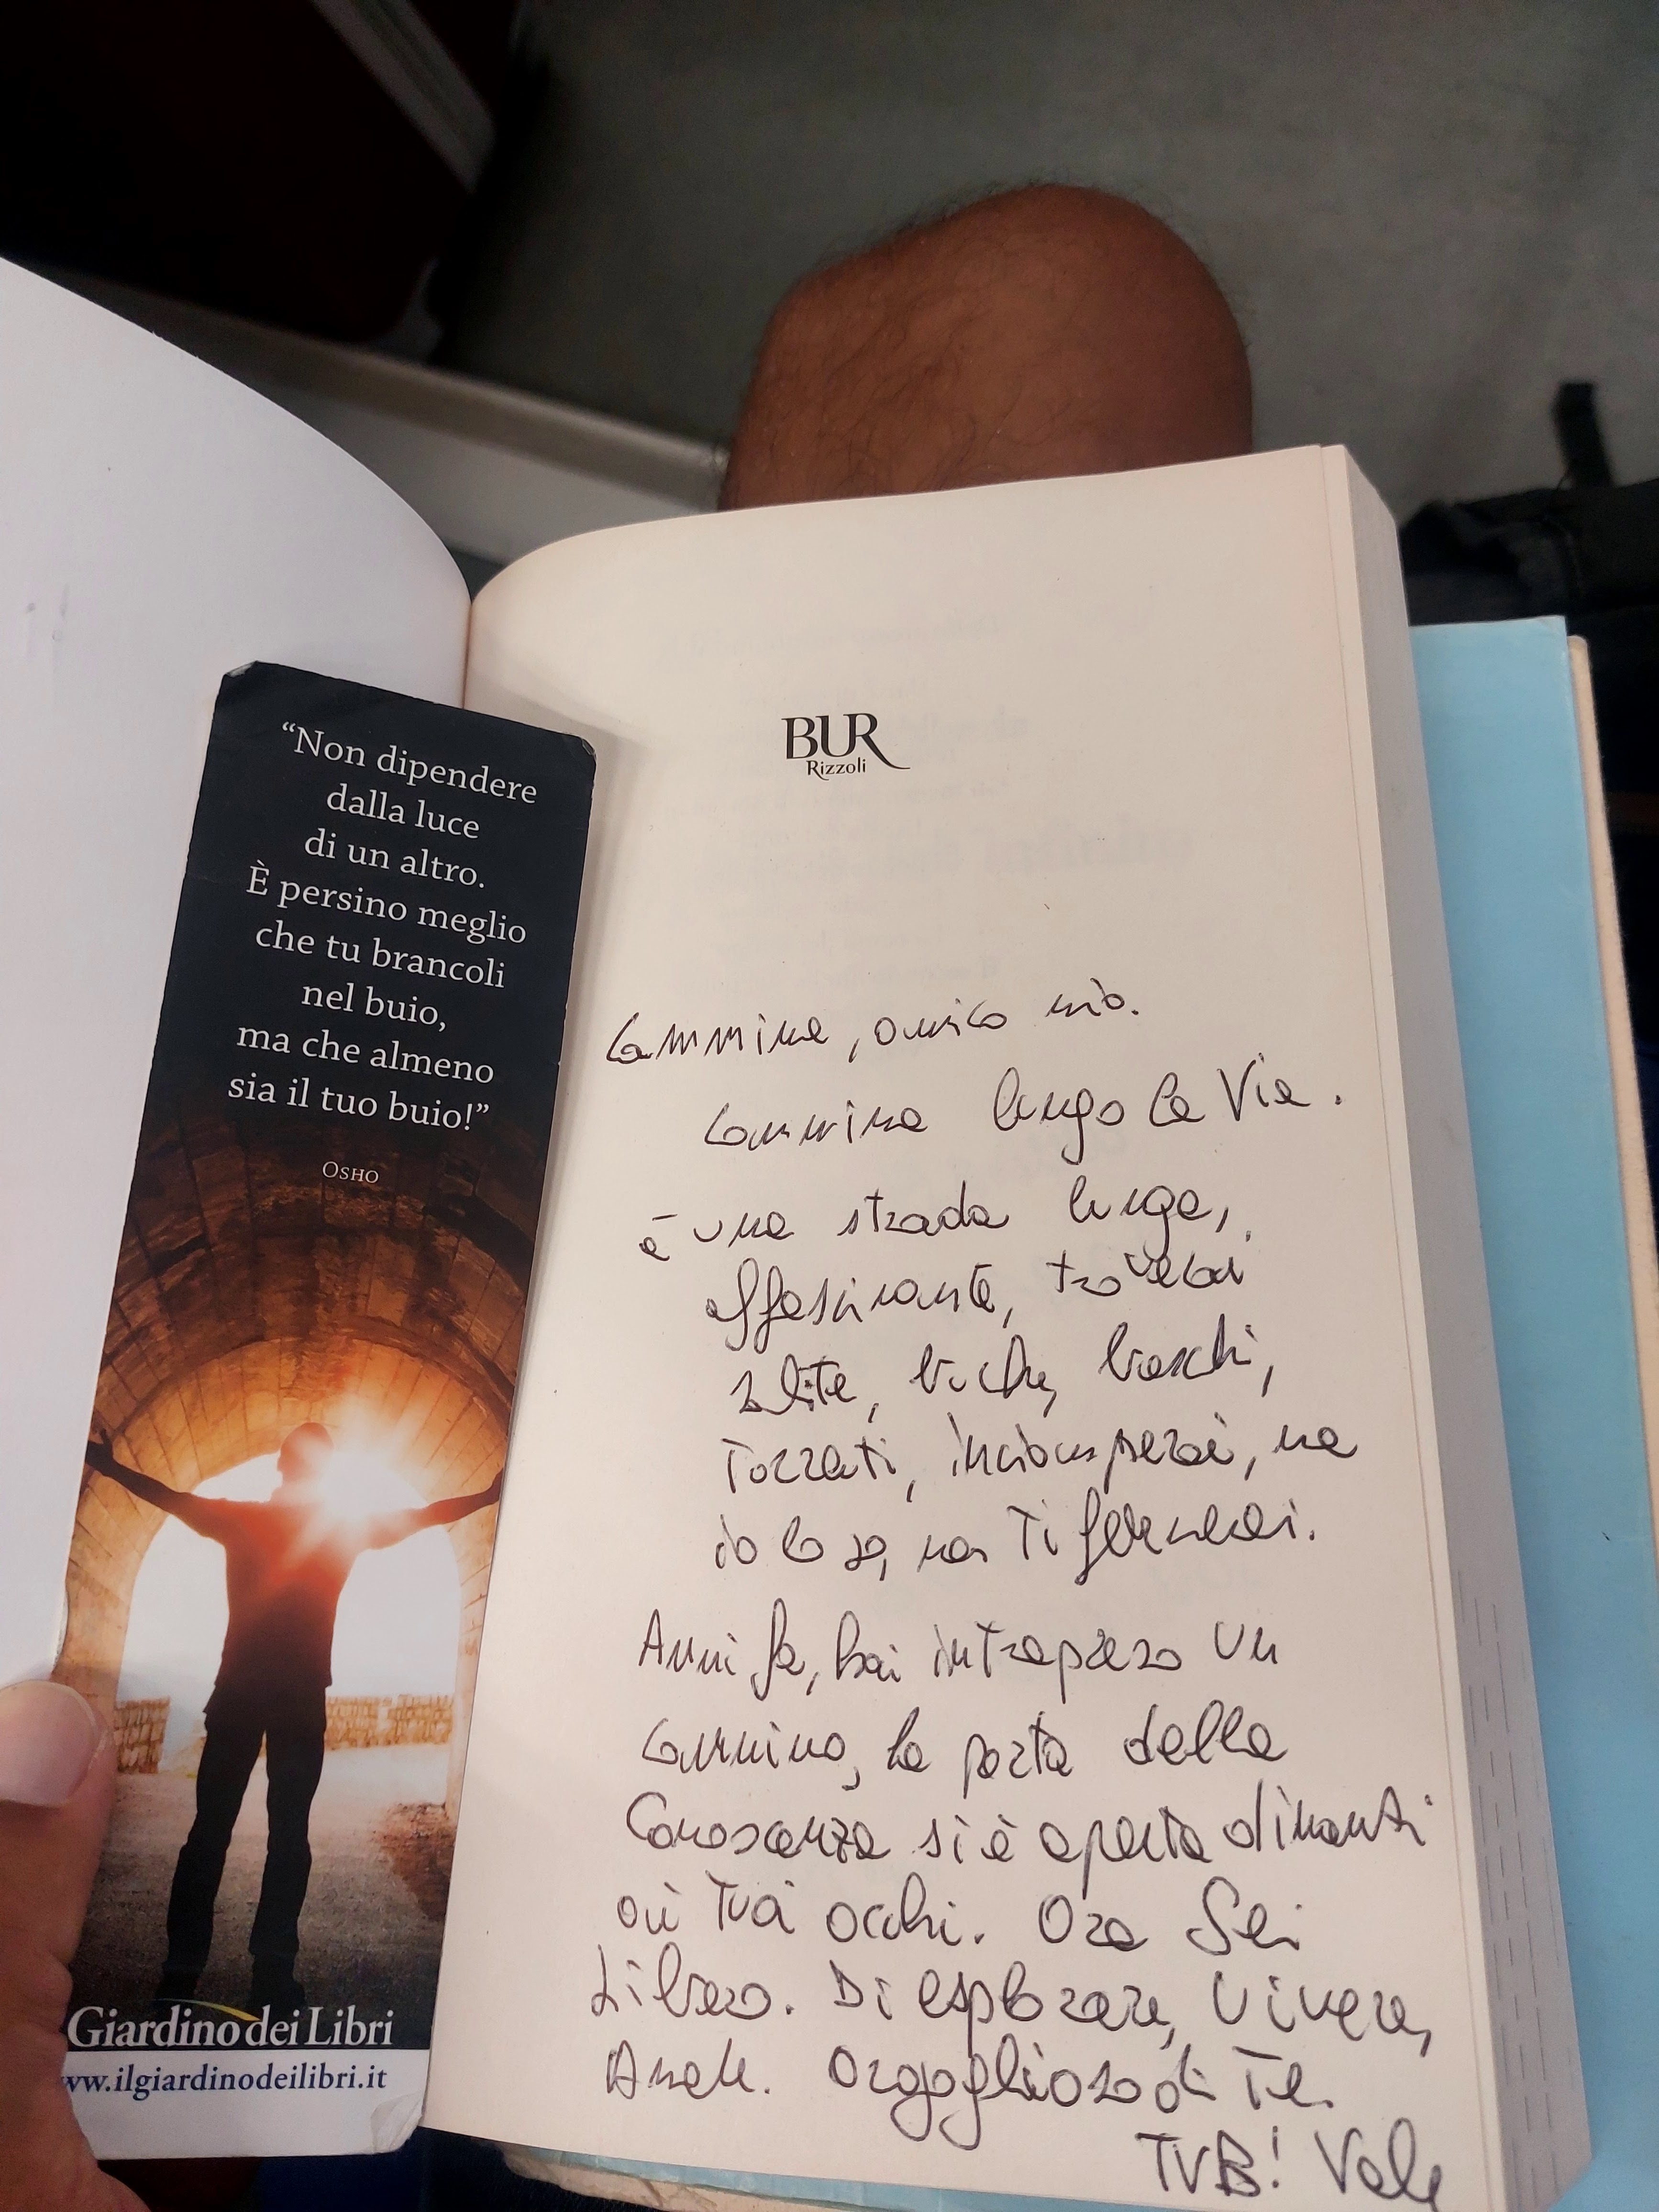 "Non dipendere
dalla luce
di un altro.
È persino meglio
che tu brancoli
nel buio,
ma che almeno
sia il tuo buio!"
OSHO
Giardino dei Libri
ww.ilgiardinodeilibri.it
BUR
Rizzoli
Cammina, amico mio.
Cammina lungo la Via.
è una strada lunga,
affascinante, troverai
salite, buche, boschi,
Torrenti, inciamperai, ma
io lo so, non Ti fermerai.
Anni fa, hai intrapreso un
cammino, la porta della
Conoscenza si è aperta dinanti
ai tuoi occhi. Ora Sei
Libero. Di esplorare, Vivere,
Amare. Orgoglioso di Te.
TVB! Vale